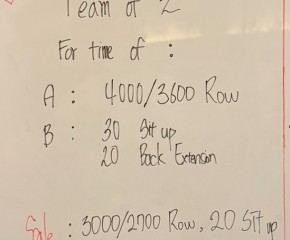 Team of 2
For time of :
A : 4000/3600 Row
B : 30 Sit up
20 Back Extension
Scale : 3000/2700 Row, 20 Sit up